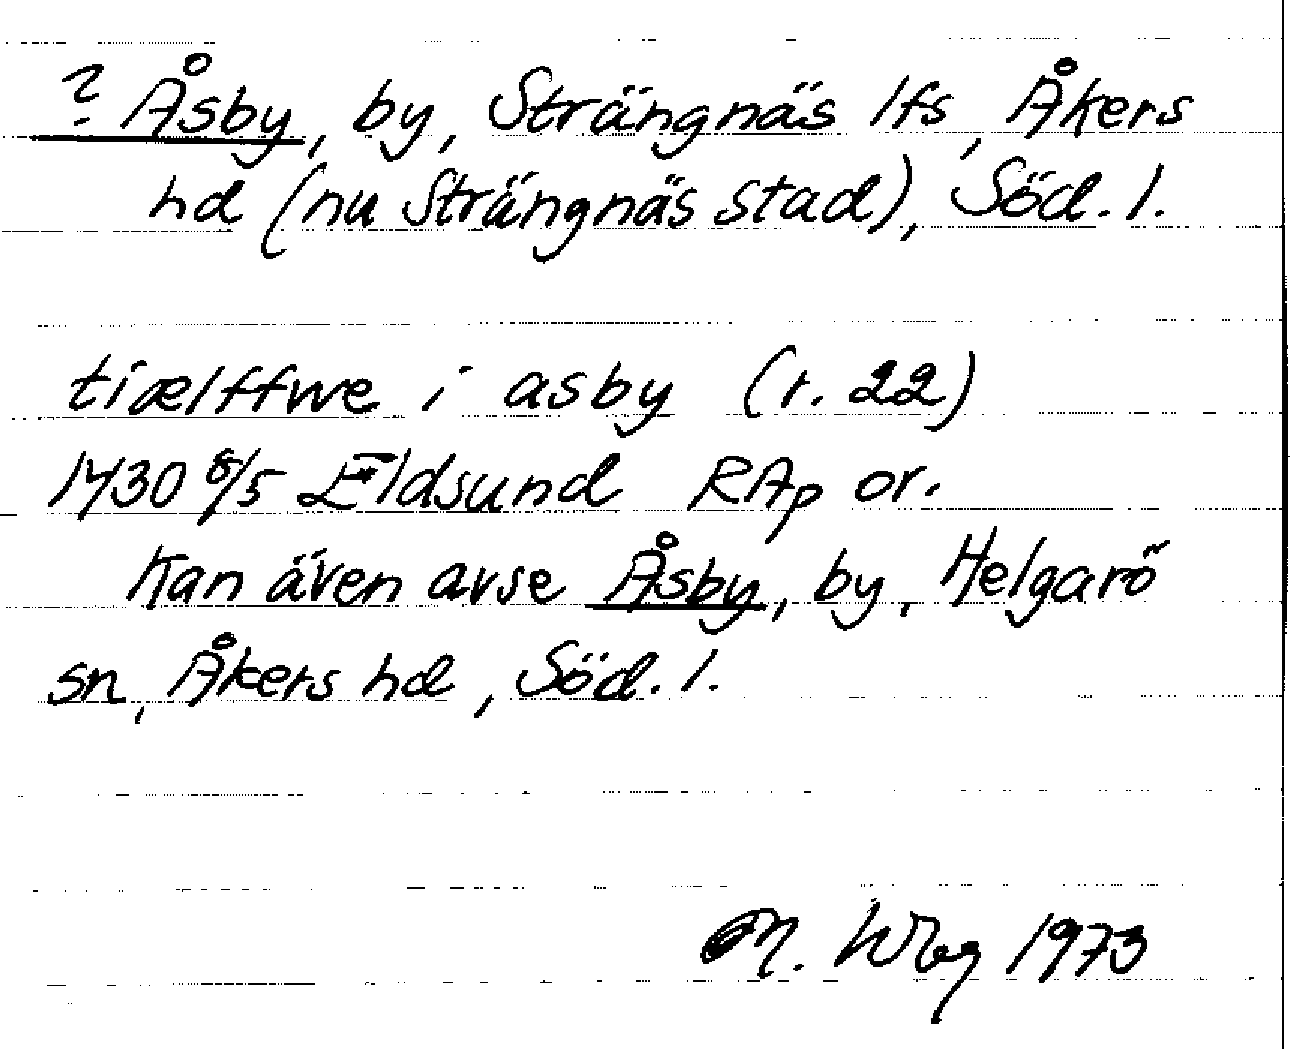 ? Åsby, by, Strängnäs lfs, Åkers
hd (nu Strängnäs stad), Söd. l.
tiælffwe i asby (r. 22)
1430 8/5 Eldsund RAp or.
Kan även avse Åsby, by, Helgarö
sn, Åkers hd, Söd. l.
M. Wbg 1973